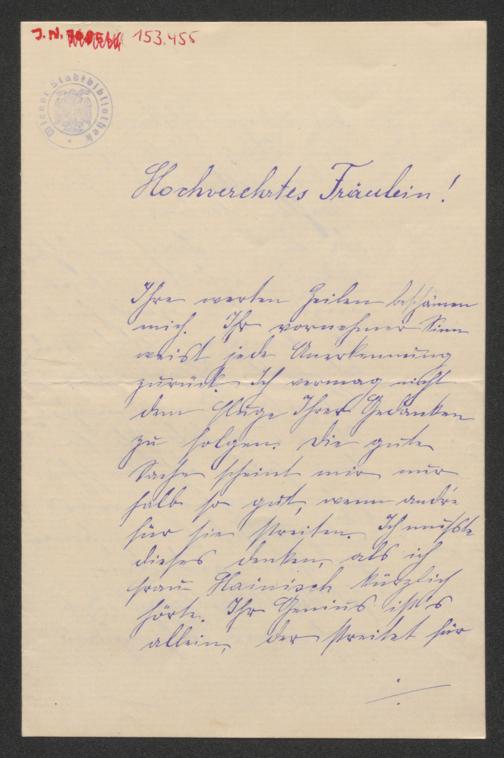 J. N. 153.455
Wiener Stadtbibliothek
Hochverehrtes Fräulein!
Ihre werten Zeilen beschämen
mich. Ihr vornehmer Sinn
weist jede Anerkennung
zurück. Ich vermag nicht
dem Fluge Ihrer Gedanken
zu folgen. Die gute
Sache scheint mir nur
halb so gut, wenn andre
für sie streiten. Ich mußte
dieses denken, als ich
Frau Hainisch kürzlich
hörte. Ihr Genius ist's
allein, der streitet für